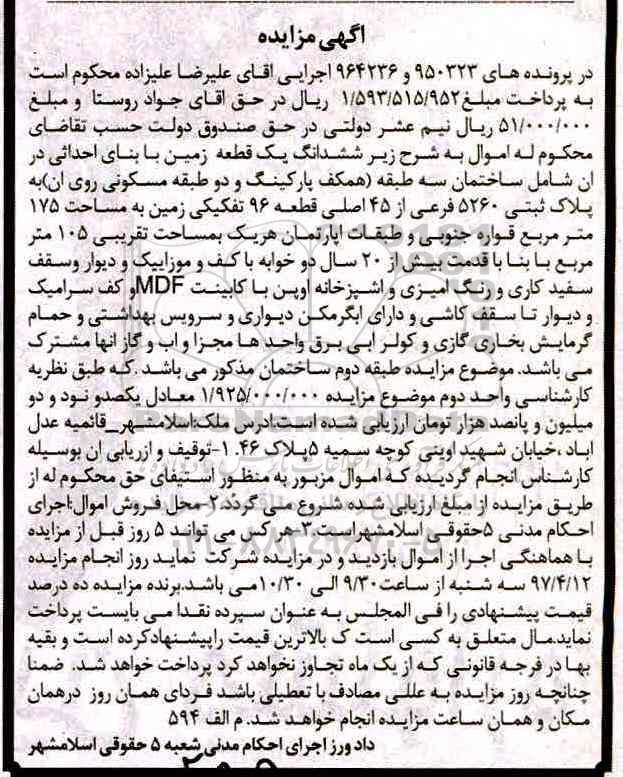 اگهی مزایده
در پرونده های ۹۵۰۳۲۳ و ۹۶۴۲۳۶ اجرایی اقای علیرضا علیزاده محکوم است
به پرداخت مبلغ۱/۵۹۳/۵۱۵/۹۵۲ ریال در حق اقای جواد روستا و مبلغ
۵۱/۰۰۰/۰۰۰ ریال نیم عشر دولتی در حق صندوق دولت حسب تقاضای
محکوم له اموال به شرح زیر ششدانگ یک قطعه زمین با بنای احداثی در
ان شامل ساختمان سه طبقه (همکف پارکینگ و دو طبقه مسکونی روی ان)به
پلاک ثبتی ۵۲۶۰ فرعی از ۴۵ اصلی قطعه ۹۶ تفکیکی زمین به مساحت ۱۷۵
متر مربع قواره جنوبی و طبقات اپارتمان هریک بمساحت تقریبی ۱۰۵ متر
مربع با بنا با قدمت بیش از ۲۰ سال دو خوابه با کف و موزاییک و دیوار وسقف
سفید کاری و رنگ امیزی و اشپزخانه اوپن با کابینت MDFو کف سرامیک
و دیوار تا سقف کاشی و دارای ابگرمکن دیواری و سرویس بهداشتی و حمام
گرمایش بخاری گازی و کولر ابی برق واحد ها مجزا و اب و گاز انها مشترک
می باشد. موضوع مزایده طبقه دوم ساختمان مذکور می باشد .که طبق نظریه
کارشناسی واحد دوم موضوع مزایده ۱/۹۲۵/۰۰۰/۰۰۰ معادل یکصدو نود و دو
میلیون و پانصد هزار تومان ارزیابی شده است:ادرس ملک:اسلامشهر_قائمیه عدل
اباد ،خیابان شهید اوینی کوچه سمیه ۵پلاک ۴۶. ۱-توقیف و ازریابی ان بوسیله
کارشناس انجام گردیده که اموال مزبور به منظور استیفای حق محکوم له از
طریق مزایده از مبلغ ارزیابی شده شروع می گردد.۲-محل فروش اموال:اجرای
احکام مدنی ۵حقوقی اسلامشهراست.۳-هرکس می تواند ۵ روز قبل از مزایده
با هماهنگی اجرا از اموال بازدید و در مزایده شرکت نماید روز انجام مزایده
۹۷/۴/۱۲ سه شنبه از ساعت۹/۳۰ الی ۱۰/۳۰می باشد.برنده مزایده ده درصد
قیمت پیشنهادی را فی المجلس به عنوان سپرده نقدا می بایست پرداخت
نماید.مال متعلق به کسی است ک بالاترین قیمت راپیشنهادکرده است و بقیه
بها در فرجه قانونی که از یک ماه تجاوز نخواهد کرد پرداخت خواهد شد. ضمنا
چنانچه روز مزایده به عللی مصادف با تعطیلی باشد فردای همان روز درهمان
مکان و همان ساعت مزایده انجام خواهد شد. م الف ۵۹۴
داد ورز اجرای احکام مدنی شعبه ۵ حقوقی اسلامشهر